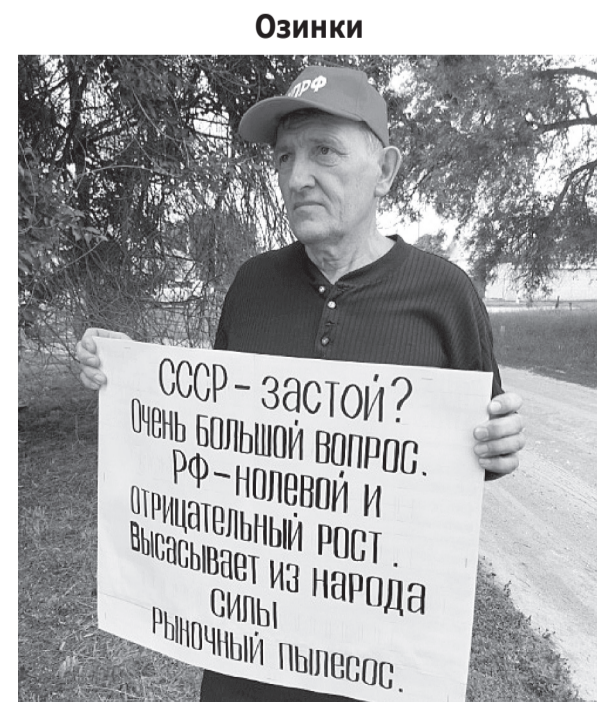 Озинки
ПРФ
СССР – застой?
Очень большой вопрос.
РФ – нолевой и
отрицательный рост.
Высасывает из народа
силы
рыночный пылесос.